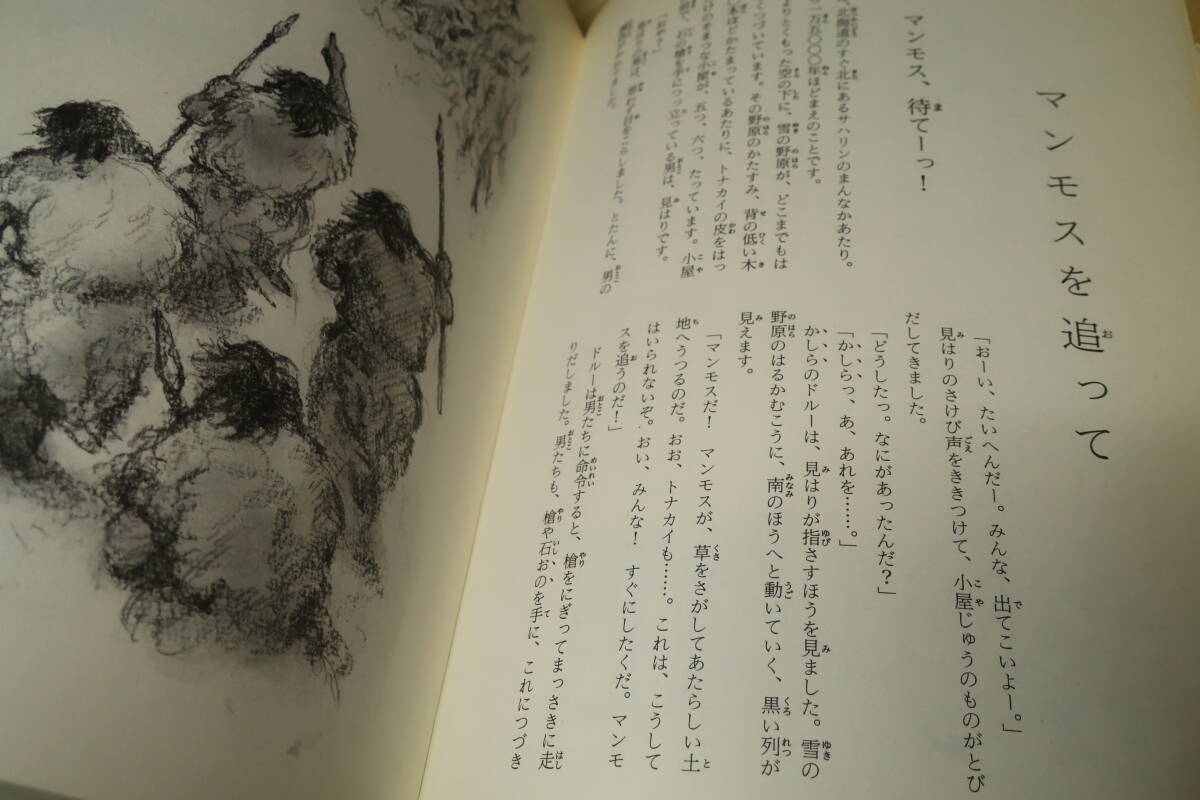 マンモスを追って
マンモス、待てーっ!
北海道のすぐ北にあるサハリンのまんなかあたり。
一万五〇〇〇年ほどまえのことです。
よりとくもった空の下に、雪の野原が、どこまでもは
くつづいています。その野原のかたすみ、背の低い木
ほどかたまっているあたりに、トナカイの皮をはっ
けのそまつな小屋が、五つ、六つ、たっています。小屋
石の槍を手につっ立っている男は、見はりです。
男は、思わず目をこらしました。とたんに、男の
「おーい、たいへんだー。みんな、出てこいよー。」
見はりのさけび声をききつけて、小屋じゅうのものがとび
だしてきました。
「どうしたっ。なにがあったんだ?」
「かしらっ、あ、あれを……。」
かしらのドルーは、見はりが指さすほうを見ました。雪の
野原のはるかむこうに、南のほうへと動いていく、黒い列が
見えます。
「マンモスだ! マンモスが、草をさがしてあたらしい土
地へうつるのだ。おお、トナカイも……。これは、こうして
はいられないぞ。おい、みんな! すぐにしたくだ。マンモ
スを追うのだ!」
ドルーは男たちに命令すると、槍をにぎってまっさきに走
りだしました。男たちも、槍や石おのを手に、これにつづき